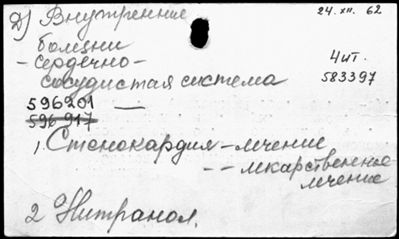 Д) Внутренние
24.XII. 62
болезни
- Сердечно -
сосудистая система
Чит.
583397
596201 —
596917
1. Стенокардия - лечение
- - лекарственное
лечение
2 Нитранол.